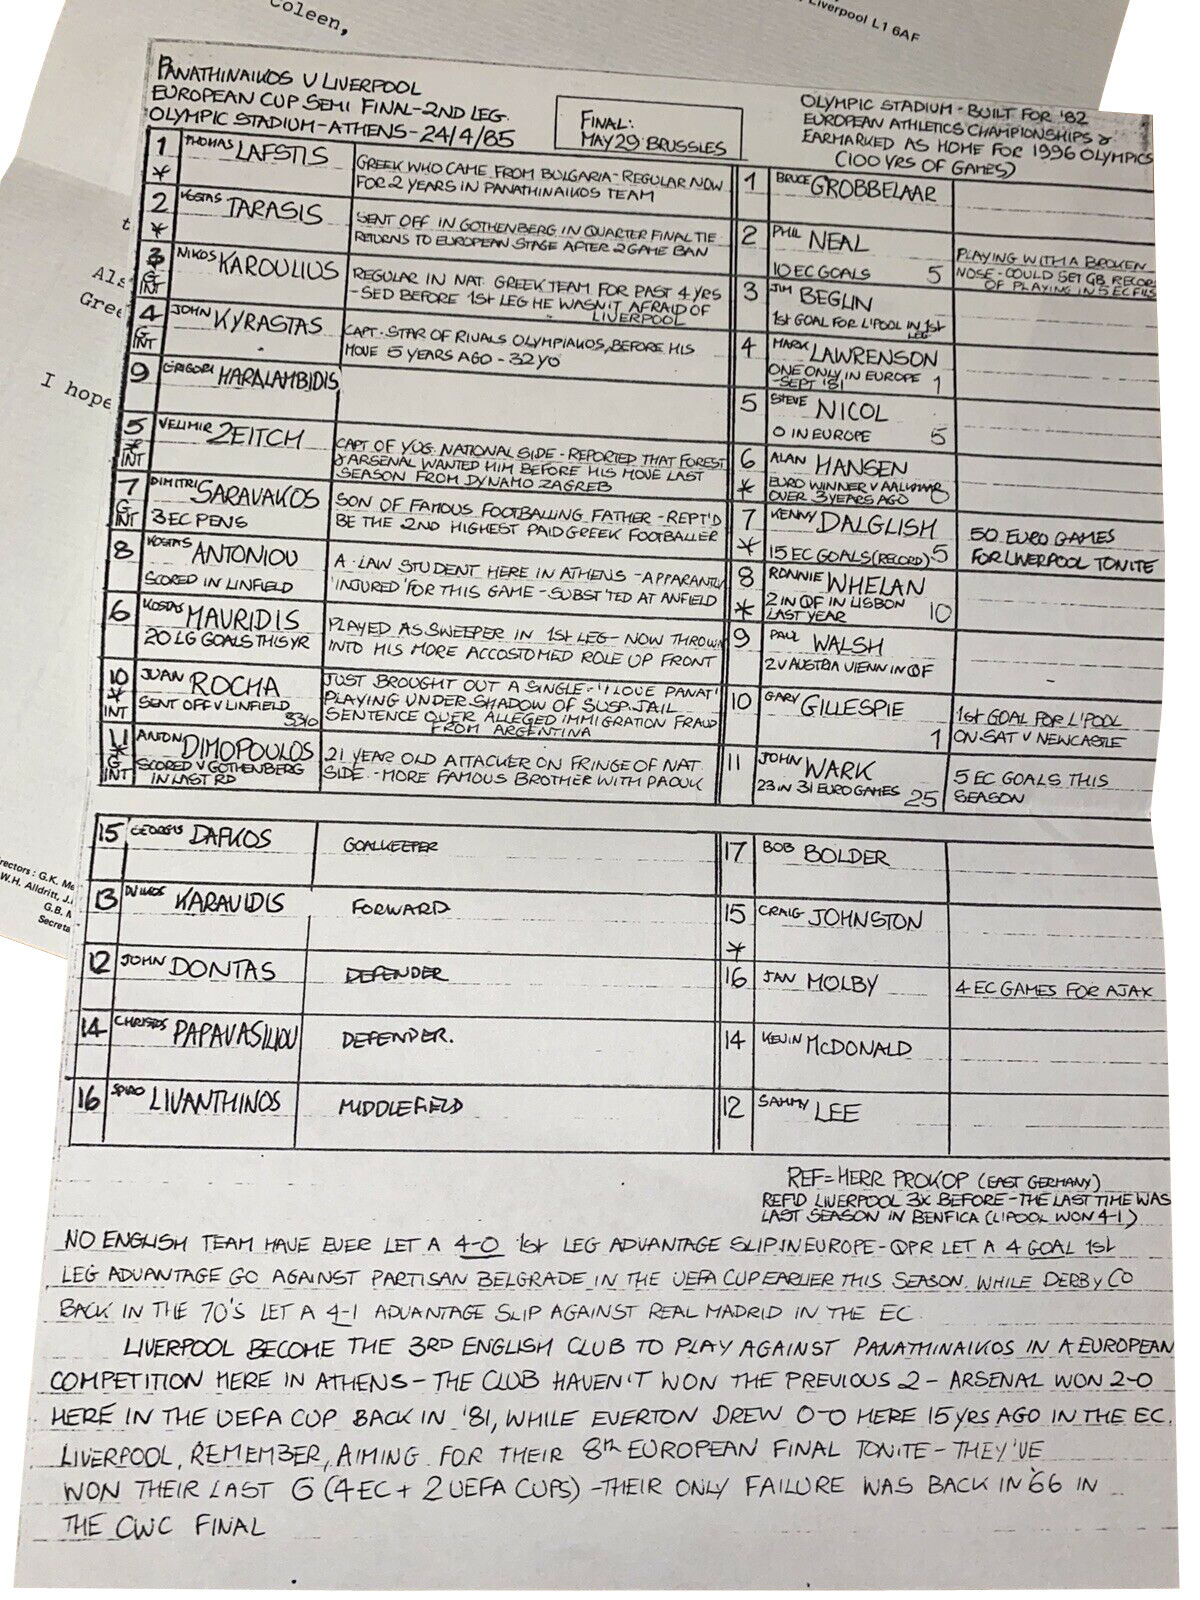 Coleen,
Liverpool L1 6AF
PANATHINAIKOS V LIVERPOOL
EUROPEAN CUP SEMI FINAL-2ND LEG.
OLYMPIC STADIUM-ATHENS-24/4/85
FINAL:
MAY 29 BRUSSLES
OLYMPIC STADIUM - BUILT FOR '82
EUROPEAN ATHLETICS CHAMPIONSHIPS &
EARMARKED AS HOME FOR 1996 OLYMPICS
(100 YRS OF GAMES)
1 * THOMAS LAFSTIS
GREEK WHO CAME FROM BULGARIA-REGULAR NOW
FOR 2 YEARS IN PANATHINAIKOS TEAM
2 * KOSTAS TARASIS
SENT OFF IN GOTHENBERG IN QUARTER FINAL TIE
RETURNS TO EUROPEAN STAGE AFTER 2 GAME BAN
3 G INT NIKOS KAROULIUS
REGULAR IN NAT. GREEK TEAM FOR PAST 4 YRS
-SED BEFORE 1st LEG HE WASN'T AFRAID OF
LIVERPOOL
4 G INT JOHN KYRASTAS
CAPT-STAR OF RIVALS OLYMPIAKOS, BEFORE HIS
MOVE 5 YEARS AGO - 32 YO
9 GRIGORI HARALAMBIDIS
5 * INT VELIMIR ZEITCH
CAPT OF YUG. NATIONAL SIDE-REPORTED THAT FOREST
& ARSENAL WANTED HIM BEFORE HIS MOVE LAST
SEASON FROM DYNAMO ZAGREB
7 G INT DIMITRI SARAVAKOS
3 EC PENS
SON OF FAMOUS FOOTBALLING FATHER - REPT'D
BE THE 2ND HIGHEST PAID GREEK FOOTBALLER
8 KOSTAS ANTONIOU
SCORED IN LINFIELD
A-LAW STUDENT HERE IN ATHENS -APPARANTLY
'INJURED' FOR THIS GAME-SUBST'TED AT ANFIELD
6 KOSTAS MAURIDIS
20 LG GOALS THIS YR
PLAYED AS SWEEPER IN 1St LEG-NOW THROWN
INTO HIS MORE ACCOSTOMED ROLE UP FRONT
10 * INT JUAN ROCHA
SENT OFF V LINFIELD
33YO
JUST BROUGHT OUT A SINGLE-'I LOVE PANAT'
PLAYING UNDER SHADOW OF SUSP. JAIL
SENTENCE OVER ALLEGED IMMIGRATION FRAUD
FROM ARGENTINA
11 * G INT ANTON DIMOPOULOS
SCORED V GOTHENBERG
IN LAST RD
21 YEAR OLD ATTACKER ON FRINGE OF NAT.
SIDE.-MORE FAMOUS BROTHER WITH PAOUK
1 BRUCE GROBBELAAR
2 PHIL NEAL
10 EC GOALS 5
PLAYING WITH A BROKEN
NOSE-COULD SET GB RECOR
OF PLAYING IN 5 EC FILS
3 JIM BEGLIN
1st GOAL FOR L'POOL IN 1st
LEG
4 MARK LAWRENSON
ONE ONLY IN EUROPE
-SEPT '81 1
5 STEVE NICOL
0 IN EUROPE 5
6 * ALAN HANSEN
EURO WINNER V AALKMAR
OVER 3 YEARS AGO 0
7 * KENNY DALGLISH
15 EC GOALS (RECORD) 5
50 EURO GAMES
FOR LIVERPOOL TONITE
8 * RONNIE WHELAN
2 IN QF IN LISBON
LAST YEAR 10
9 PAUL WALSH
2 V AUSTRIA VIENN IN QF
10 GARY GILLESPIE
1
1st GOAL FOR L'POOL
ON.SAT V NEWCASTLE
11 JOHN WARK
23 IN 31 EURO GAMES 25
5 EC GOALS THIS
SEASON
15 GEORGIS DAFKOS GOALKEEPER
13 KARAVIDIS FORWARD
12 JOHN DONTAS DEFENDER
14 CHRISTOS PAPAVASILIOU DEFENDER.
16 SPIRO LIVANTHINOS MIDDLEFIELD
17 BOB BOLDER
15 * CRAIG JOHNSTON
16 JAN MOLBY 4 EC GAMES FOR AJAX
14 KEVIN McDONALD
12 SAMMY LEE
REF=HERR PROKOP (EAST GERMANY)
REF'D LIVERPOOL 3X BEFORE-THE LAST TIME WAS
LAST SEASON IN BENFICA (L'POOL WON 4-1)
NO ENGLISH TEAM HAVE EVER LET A 4-0 1st LEG ADVANTAGE SLIP IN EUROPE-QPR LET A 4 GOAL 1st
LEG ADVANTAGE GO AGAINST PARTISAN BELGRADE IN THE UEFA CUP EARLIER THIS SEASON. WHILE DERBY CO
BACK IN THE 70'S LET A 4-1 ADVANTAGE SLIP AGAINST REAL MADRID IN THE EC
LIVERPOOL BECOME THE 3RD ENGLISH CLUB TO PLAY AGAINST PANATHINAIKOS IN A EUROPEAN
COMPETITION HERE IN ATHENS-THE CLUB HAVEN'T WON THE PREVIOUS 2-ARSENAL WON 2-0
HERE IN THE UEFA CUP BACK IN '81, WHILE EVERTON DREW 0-0 HERE 15 YRS AGO IN THE EC.
LIVERPOOL, REMEMBER, AIMING FOR THEIR 8th EUROPEAN FINAL TONITE-THEY'VE
WON THEIR LAST 6 (4 EC + 2 UEFA CUPS) -THEIR ONLY FAILURE WAS BACK IN '66 IN
THE CWC FINAL
Als
Gree
I hope
rectors: G.K. M
W.H. Alldritt, J.
G.B. M
Secreta